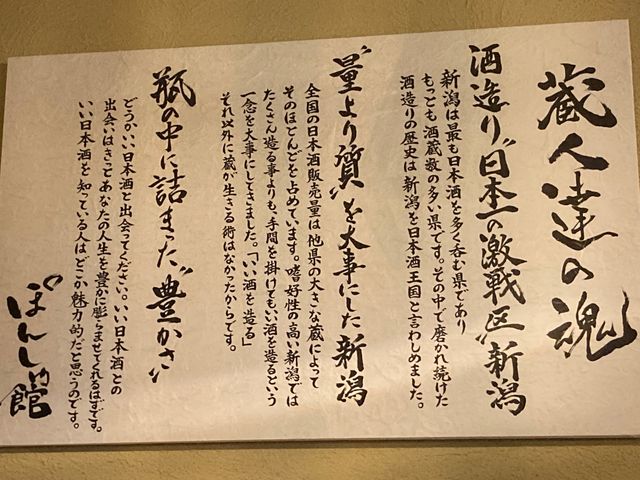 蔵人達の魂
酒造り"日本一の激戦区"新潟
新潟は最も日本酒を多く呑む県であり
もっとも酒蔵数の多い県です。その中で磨かれ続けた
酒造りの歴史は新潟を日本酒王国と言わしめました。
"量より質"を大事にした新潟
全国の日本酒販売量は他県の大きな蔵によって
そのほとんどを占めています。嗜好性の高い新潟では
たくさん造る事よりも、手間を掛けてもいい酒を造るという
一念を大事にしてきました。「いい酒を造る」
それ以外に蔵が生きる術はなかったからです。
瓶の中に詰まった"豊かさ"
どうかいい日本酒と出会ってください。いい日本酒との
出会いはきっとあなたの人生を豊かに膨らませてくれるはずです。
いい日本酒を知っている人はどこか魅力的だと思うのです。
ぽんしゅ館